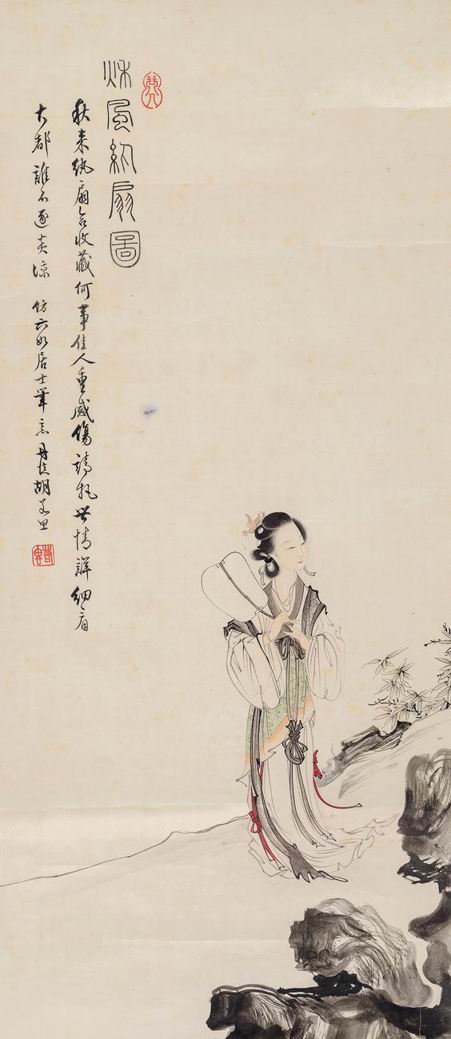 秌風紈扇圖
秋來紈扇合收藏何事佳人重感傷請把世情詳細看
大都誰不逐炎涼 仿六如居士筆意 胡